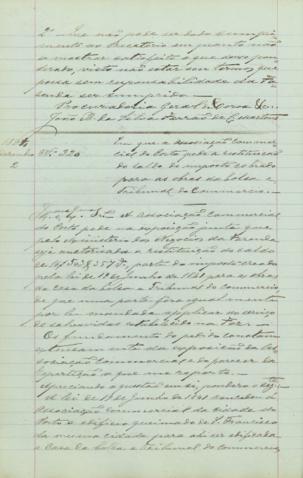 2º - Que não pode ser dado cumpri-
mento ao Precatorio em quanto não
se mostrar satisfeito o que devo pon-
derado, visto não estar em termos, que
possa sem responsabilidade da Fa-
zenda ser cumprido. -
Procuradoria Geral da Coroa &c.
João B. da Silva Ferrão de C. Martens
Dezembro
2
Nº 320
Em que a Associação Commer-
cial do Porto pede a restituição
do saldo do imposto cobrado
para as obras da bolsa e
Tribunal do Commercio. -
A Associação Commercial
do Porto pede na exposição junta que
pelo Ministerio dos Negocios da Fazenda
seja autorisada a restituição do saldo
de parte do imposto creado
pela lei de 19 de Junho de 1841 para as obras
da Casa da bolsa e Tribunal do Commercio
de que uma parte fôra igualmente
por lei mandada applicar ao serviço
de salvavidas estabelecido na Foz. -
Os fundamentos do pedido constam
extensamente da exposição da As-
sociação Commercial, e do parecer da
Repartição a que me reporto. -
Apreciando a questão em si, pondero o seg.te
A lei de 19 de Junho de 1841 concedeu á
Associação Commercial da cidade do
Porto o edificio queimado de S. Francisco
da mesma cidade para ahi ser edificada
a Casa da bolsa e Tribunal do Commercio